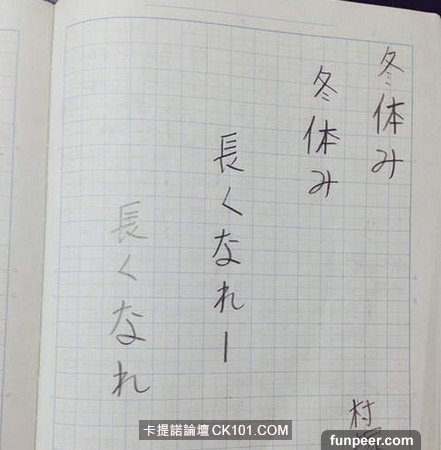 冬休み
冬休み
長くなれー
長くなれ
村
卡提諾論壇 CK101.COM
funpeer.com